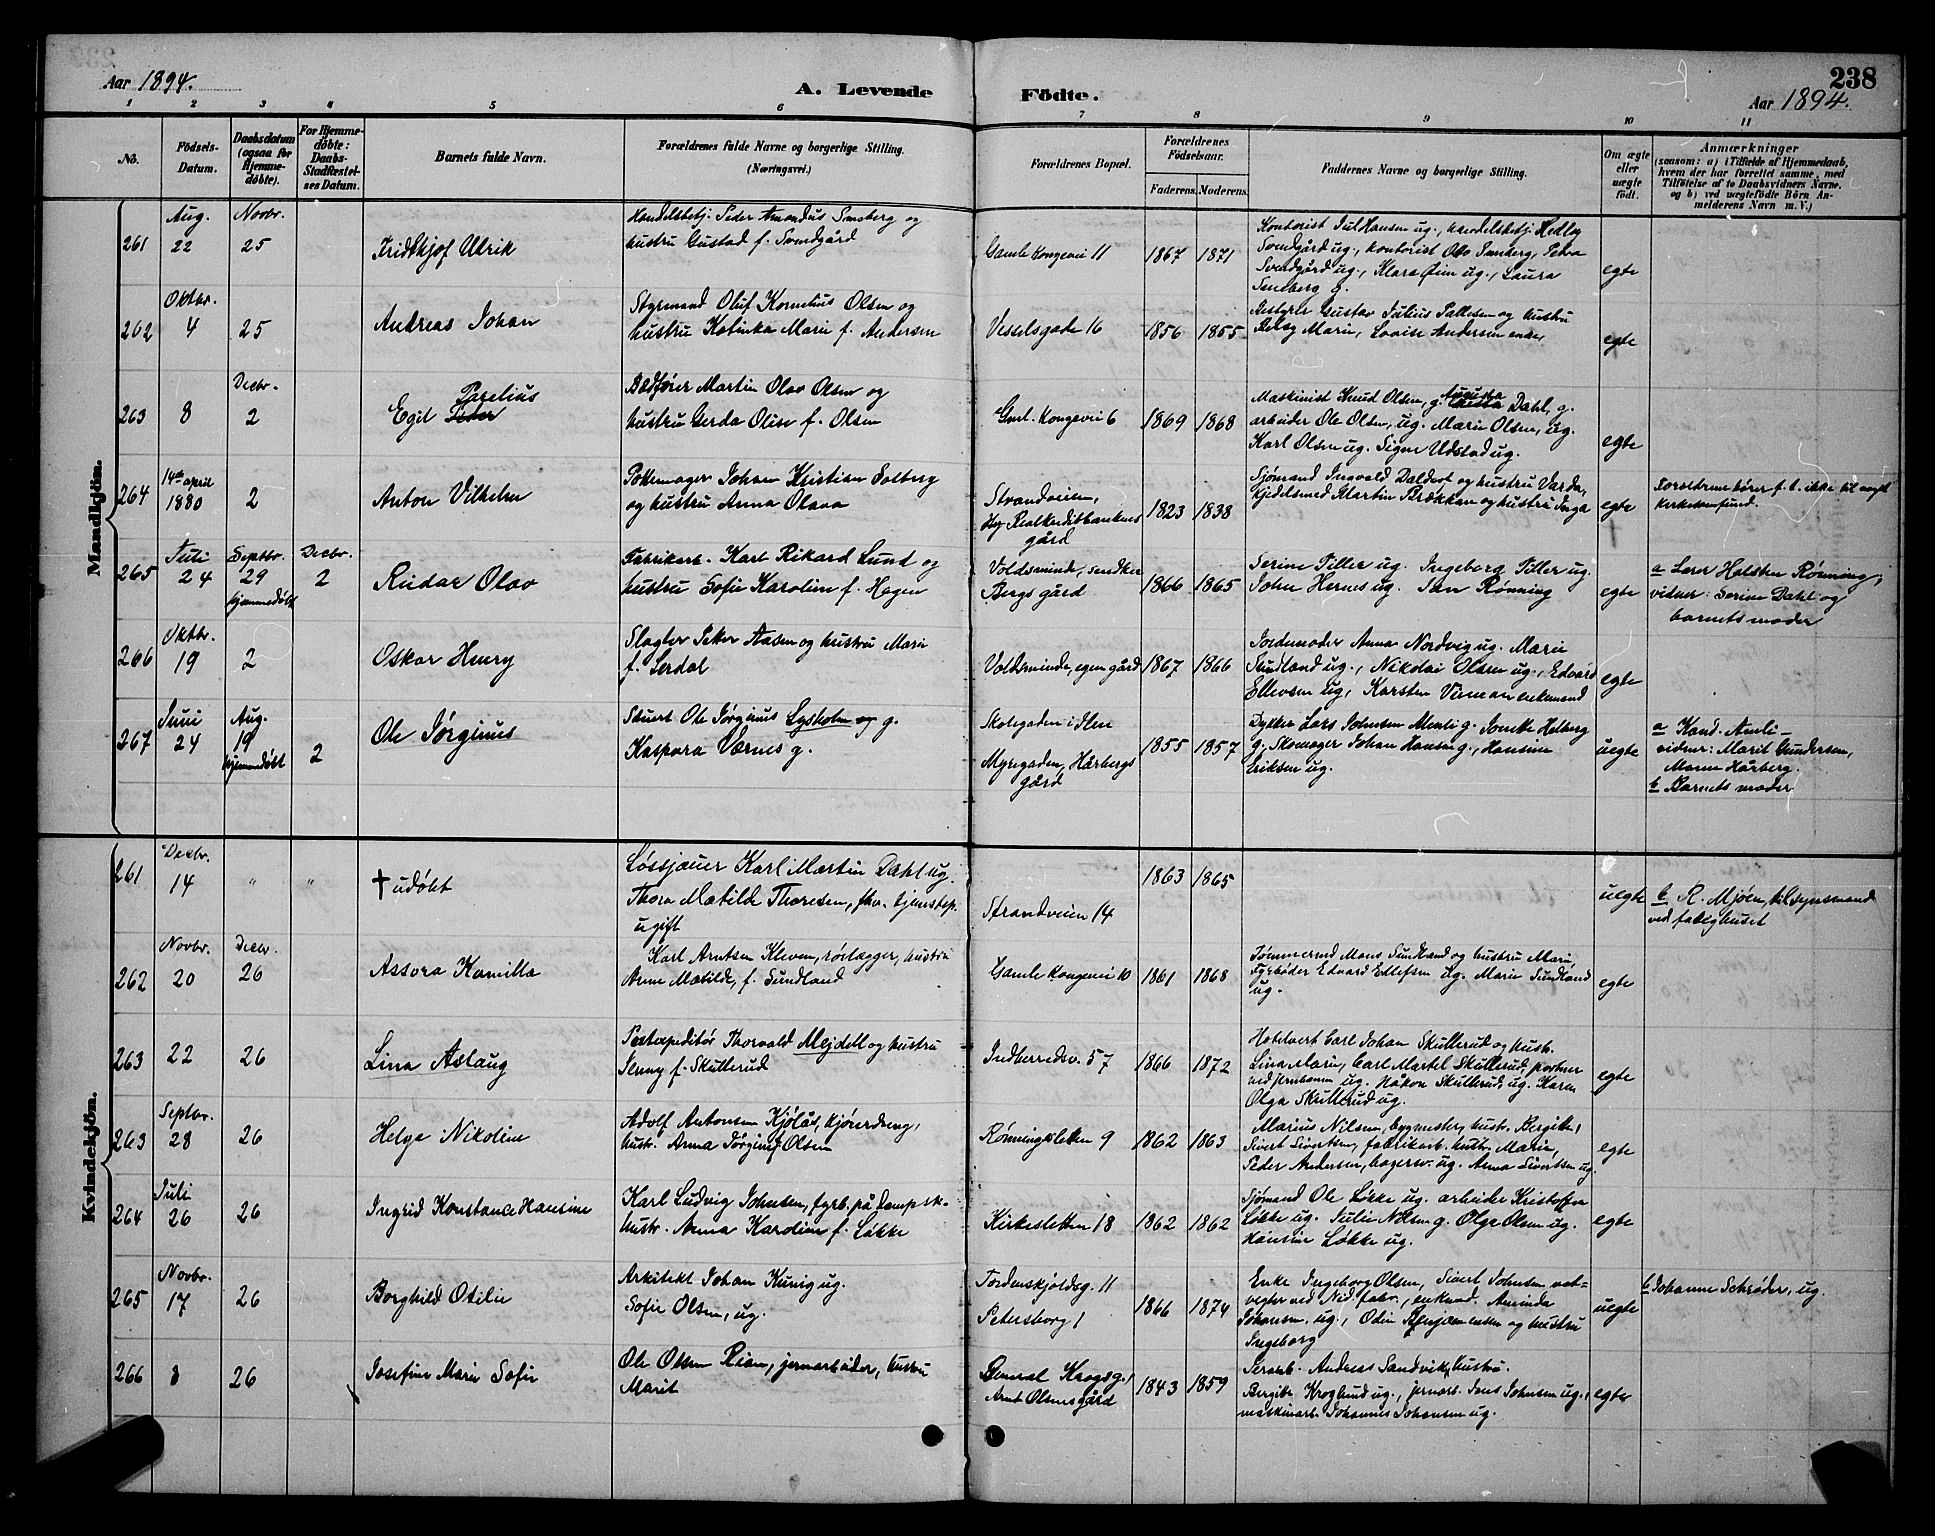 Aar 1894.
A. Levende Födte.
238
Aar 1894.
1 2 3 4 5 6 7 8 9 10 11
No.
Födsels-Datum.
Daabsdatum (ogsaa for Hjemme-döbte).
For Hjemme-döbte: Daabs-Stadfæstel-ses Datum.
Barnets fulde Navn.
Forældrenes fulde Navne og borgerlige Stilling.
(Næringsvei.)
Forældrenes Bopæl.
Forældrenes Födselsaar.
Faderens. Moderens.
Faddernes Navne og borgerlige Stilling.
Om ægte eller uægte födt.
Anmærkninger
(saasom: a) i Tilfælde af Hjemmedaab,
hvem der har forrettet samme, med
Tilföielse af to Daabsvidners Navne,
og b) ved uægtefödte Börn An-
melderens Navn m. V.)
Mandkjön.
261 Aug. 22 Novbr. 25
Fridthjof Ulrik
Handelsbetj. Peder Amandus Smeberg og
hustru Gustad f. Svendgård
Gamle Kongevei 11
1867 1871
Kontorist Jul Hansen ug., handelsbetj. Hedley
Svendgård ug., kontorist Olav Smeberg, Petra
Svendgård ug., Klara Øien ug., Laura
Smeberg g.
egte
262 Oktbr. 4 25
Andreas Johan
Styrmand Oluf Kornelius Olsen og
hustru Katinka Marie f. Andersen
Vesselsgade 16
1856 1855
Bestyrer Gustav Julius Pallesen og hustru
Betsy Marie, Lovise Andersen enke,
egte
263 8 Decbr. 2
Egil Parelius Peder
Bødtker Martin Olav Olsen og
hustru Gerda Olise f. Olsen
Gml. Kongevei 6
1869 1868
Maskinist Knud Olsen, g. Augusta Dahl, g.
arbeider Ole Olsen, ug. Marie Olsen, ug.
Karl Olsen ug. Signe Udstad ug.
egte
264 14de april 1880 2
Anton Vilhelm
Pottemager Johan Kristian Solberg
og hustru Anna Olava
Strandveien,
Hyp Realkreditbankens
gård
1823 1838
Sjømand Ingvald Daldort og hustru Varda,
kjedelsmed Martin Brækkan og hustru Inga
egte
Foreldrene hører f. t. ikke til noget
kirkesamfund.
265 Juli 24 Septbr. 29 hjemmedøbt Decbr. 2
Reidar Olav
Fabrikarb. Karl Rikard Lund og
hustru Sofie Karoline f. Hagen
Voldsminde, snedker
Bergs gård
1866 1865
Serine Tiller ug. Ingeborg Tiller ug.
John Hernes ug. Jan Rønning
egte
a Lærer Halsten Rønning,
vidner: Serine Dahl og
barnets moder
266 Oktbr. 19 2
Oskar Henry
Slagter Peter Aasen og hustru Marie
f. Lerdal
Voldsminde, egen gård
1867 1866
Jordemoder Anna Nordvig ug. Marie
Sundland ug., Nikolai Olsen ug., Edvard
Ellevsen ug, Karsten Viman enkemand
egte
267 Juni 24 Aug. 19 hjemmedøbt 2
Ole Jørginus
Stuert Ole Jørginus Lysholm og g.
Kaspara Værnes g.
Skolegaden i Ilen
Myregaden, Hårbergs
gård
1855 1857
Dykker Lars Johnsen Menli g. Jonette Helberg
g. Skomager Johan Hansen g., Hansine
Eriksen ug.
uegte
a Kand. Amli -
vidner: Marit Gundersen,
Maren Hårberg.
b Barnets moder
Kvindekjön.
261 Decbr. 14 " "
† udøbt
Løssjauer Karl Martin Dahl ug.
Thora Matilde Thoresen, fhv. tjenestep.
ugift
Strandveien 14
1863 1865
uegte
b R. Mjøen, tilsynsmand
ved fattighuset
262 Novbr. 20 Decbr. 26
Assora Kamilla
Karl Arntsen Kleven, rørlægger, hustru
Anne Matilde, f. Sundland
Gamle Kongevei 10
1861 1868
Tømmermd Mons Sundland og hustru Marie,
Fyrbøder Edvard Ellefsen ug. Marie Sundland
ug.
egte
263 22 26
Lina Aslaug
Postexpeditør Thorvald Mejdell og hustru
Jenny f. Skullerud
Indherredsv. 57
1866 1872
Hotelvert Carl Johan Skullerud og hust.
Lina Marie, Carl Martel Skullerud, portner
ved jernbanen ug. Håkon Skullerud, ug. Karen
Olga Skullerud ug.
egte
263 Septbr. 28 26
Helga Nikoline
Adolf Antonsen Kjølås, kjøredreng,
hust. Anna Jørgine f. Olsen
Rønningsletten 9
1862 1863
Marius Nilsen, bygmester, hust. Bergitte,
Sivert Sivertsen, fabrikarb. hust. Marie,
Peder Andersen, bagersv. ug. Anna Sivertsen ug.
egte
264 Juli 26 26
Ingrid Konstance Hansine
Karl Ludvig Johnsen, fyrb. på dampsk.
hust. Anna Karoline f. Løkke
Kirkesletten 18
1862 1862
Sjømand Ole Løkke ug. arbeider Kristoffer
Løkke ug. Julie Nilsen g. Olga Olsen ug.
Hansine Løkke ug.
egte
265 Novbr. 17 26
Borghild Otilie
Arkitekt Johan Kunig ug.
Sofie Olsen, ug.
Tordenskjoldsg. 11
Petersborg 1
1866 1874
Enke Ingeborg Olsen, Sivert Johnsen nat-
vegter ved Nid. fabr., enkemd. Aminda
Johansen, ug., Odin Benjaminsen og hustru
Ingeborg
uegte
b Johanne Schrøder, ug.
266 8 26
Josefine Marie Sofie
Ole Olsen Rian, jernarbeider, hustru
Marit
General Krogsg.,
Arnt Olsens gård
1843 1859
Jernarb. Andreas Sandvik, hustru.
Bergitte Kroglund ug., jernarb. Jens Johnsen ug.,
maskinarb. Johannes Johansen ug.
egte